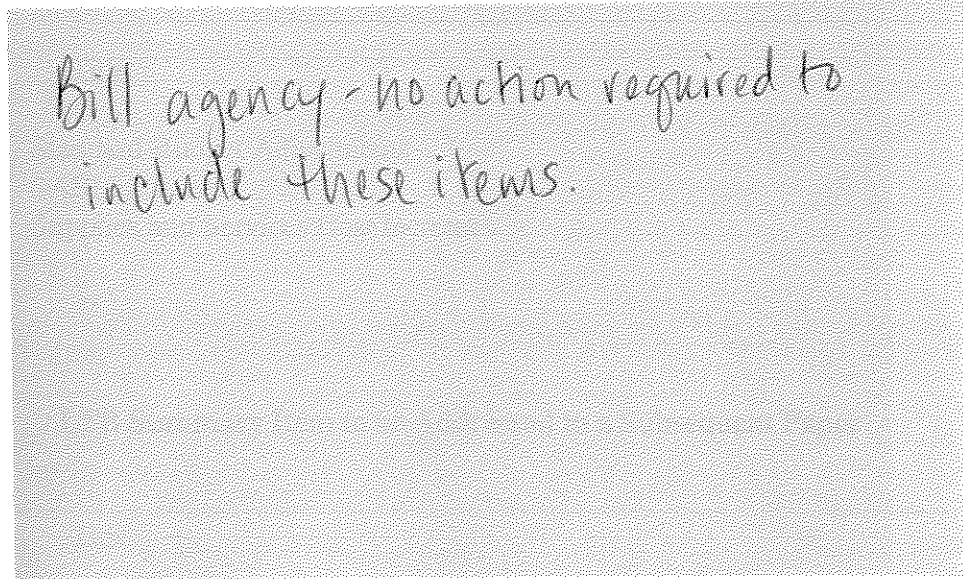 Bill agency - no action required to
include these items.